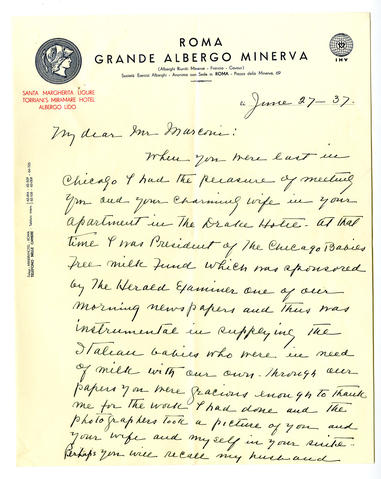 ROMA
GRANDE ALBERGO MINERVA
(Alberghi Riuniti Minerva - Francia - Cavour)
Società Esercizi Alberghi - Anonima con Sede in ROMA - Piazza della Minerva, 69
INV
SANTA MARGHERITA LIGURE
TORRIANI'S MIRAMARE HOTEL
ALBERGO LIDO
June 27-37.
My dear Mr Marconi:
When you were last in
Chicago I had the pleasure of meeting
you and your charming wife in your
apartment in The Drake Hotel. At that
time I was President of The Chicago Babies
Free milk Fund which was sponsored
by The Herald Examiner one of our
morning newspapers and thus was
instrumental in supplying the
Italian babies who were in need
of milk with our own. Through our
papers you were gracious enough to thank
me for the work I had done and the
photographers took a picture of you and
your wife and myself in your suite.
Perhaps you will recall my husband